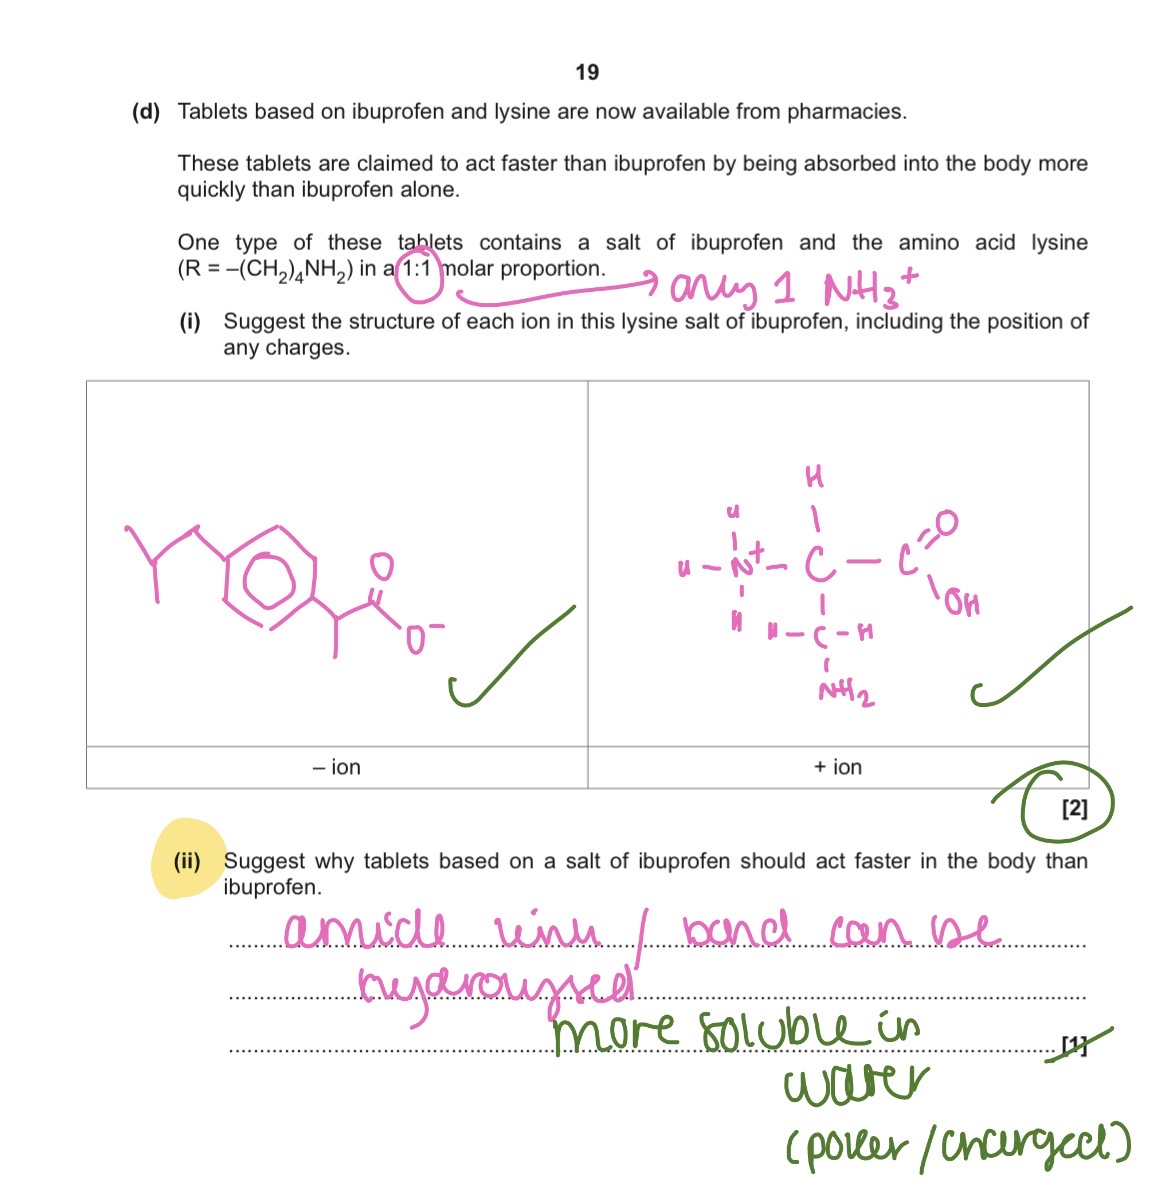 19
(d) Tablets based on ibuprofen and lysine are now available from pharmacies.
These tablets are claimed to act faster than ibuprofen by being absorbed into the body more
quickly than ibuprofen alone.
One type of these tablets contains a salt of ibuprofen and the amino acid lysine
(R = –(CH₂)₄NH₂) in a 1:1 molar proportion.
only 1 NH₃⁺
(i) Suggest the structure of each ion in this lysine salt of ibuprofen, including the position of
any charges.
O
O⁻
H
H
H – N⁺ – C – C = O
OH
H
H – C – H
NH₂
– ion
+ ion
[2]
(ii) Suggest why tablets based on a salt of ibuprofen should act faster in the body than
ibuprofen.
amide link / bond can be
hydrolysed
more soluble in
[1]
water
(polar / charged)